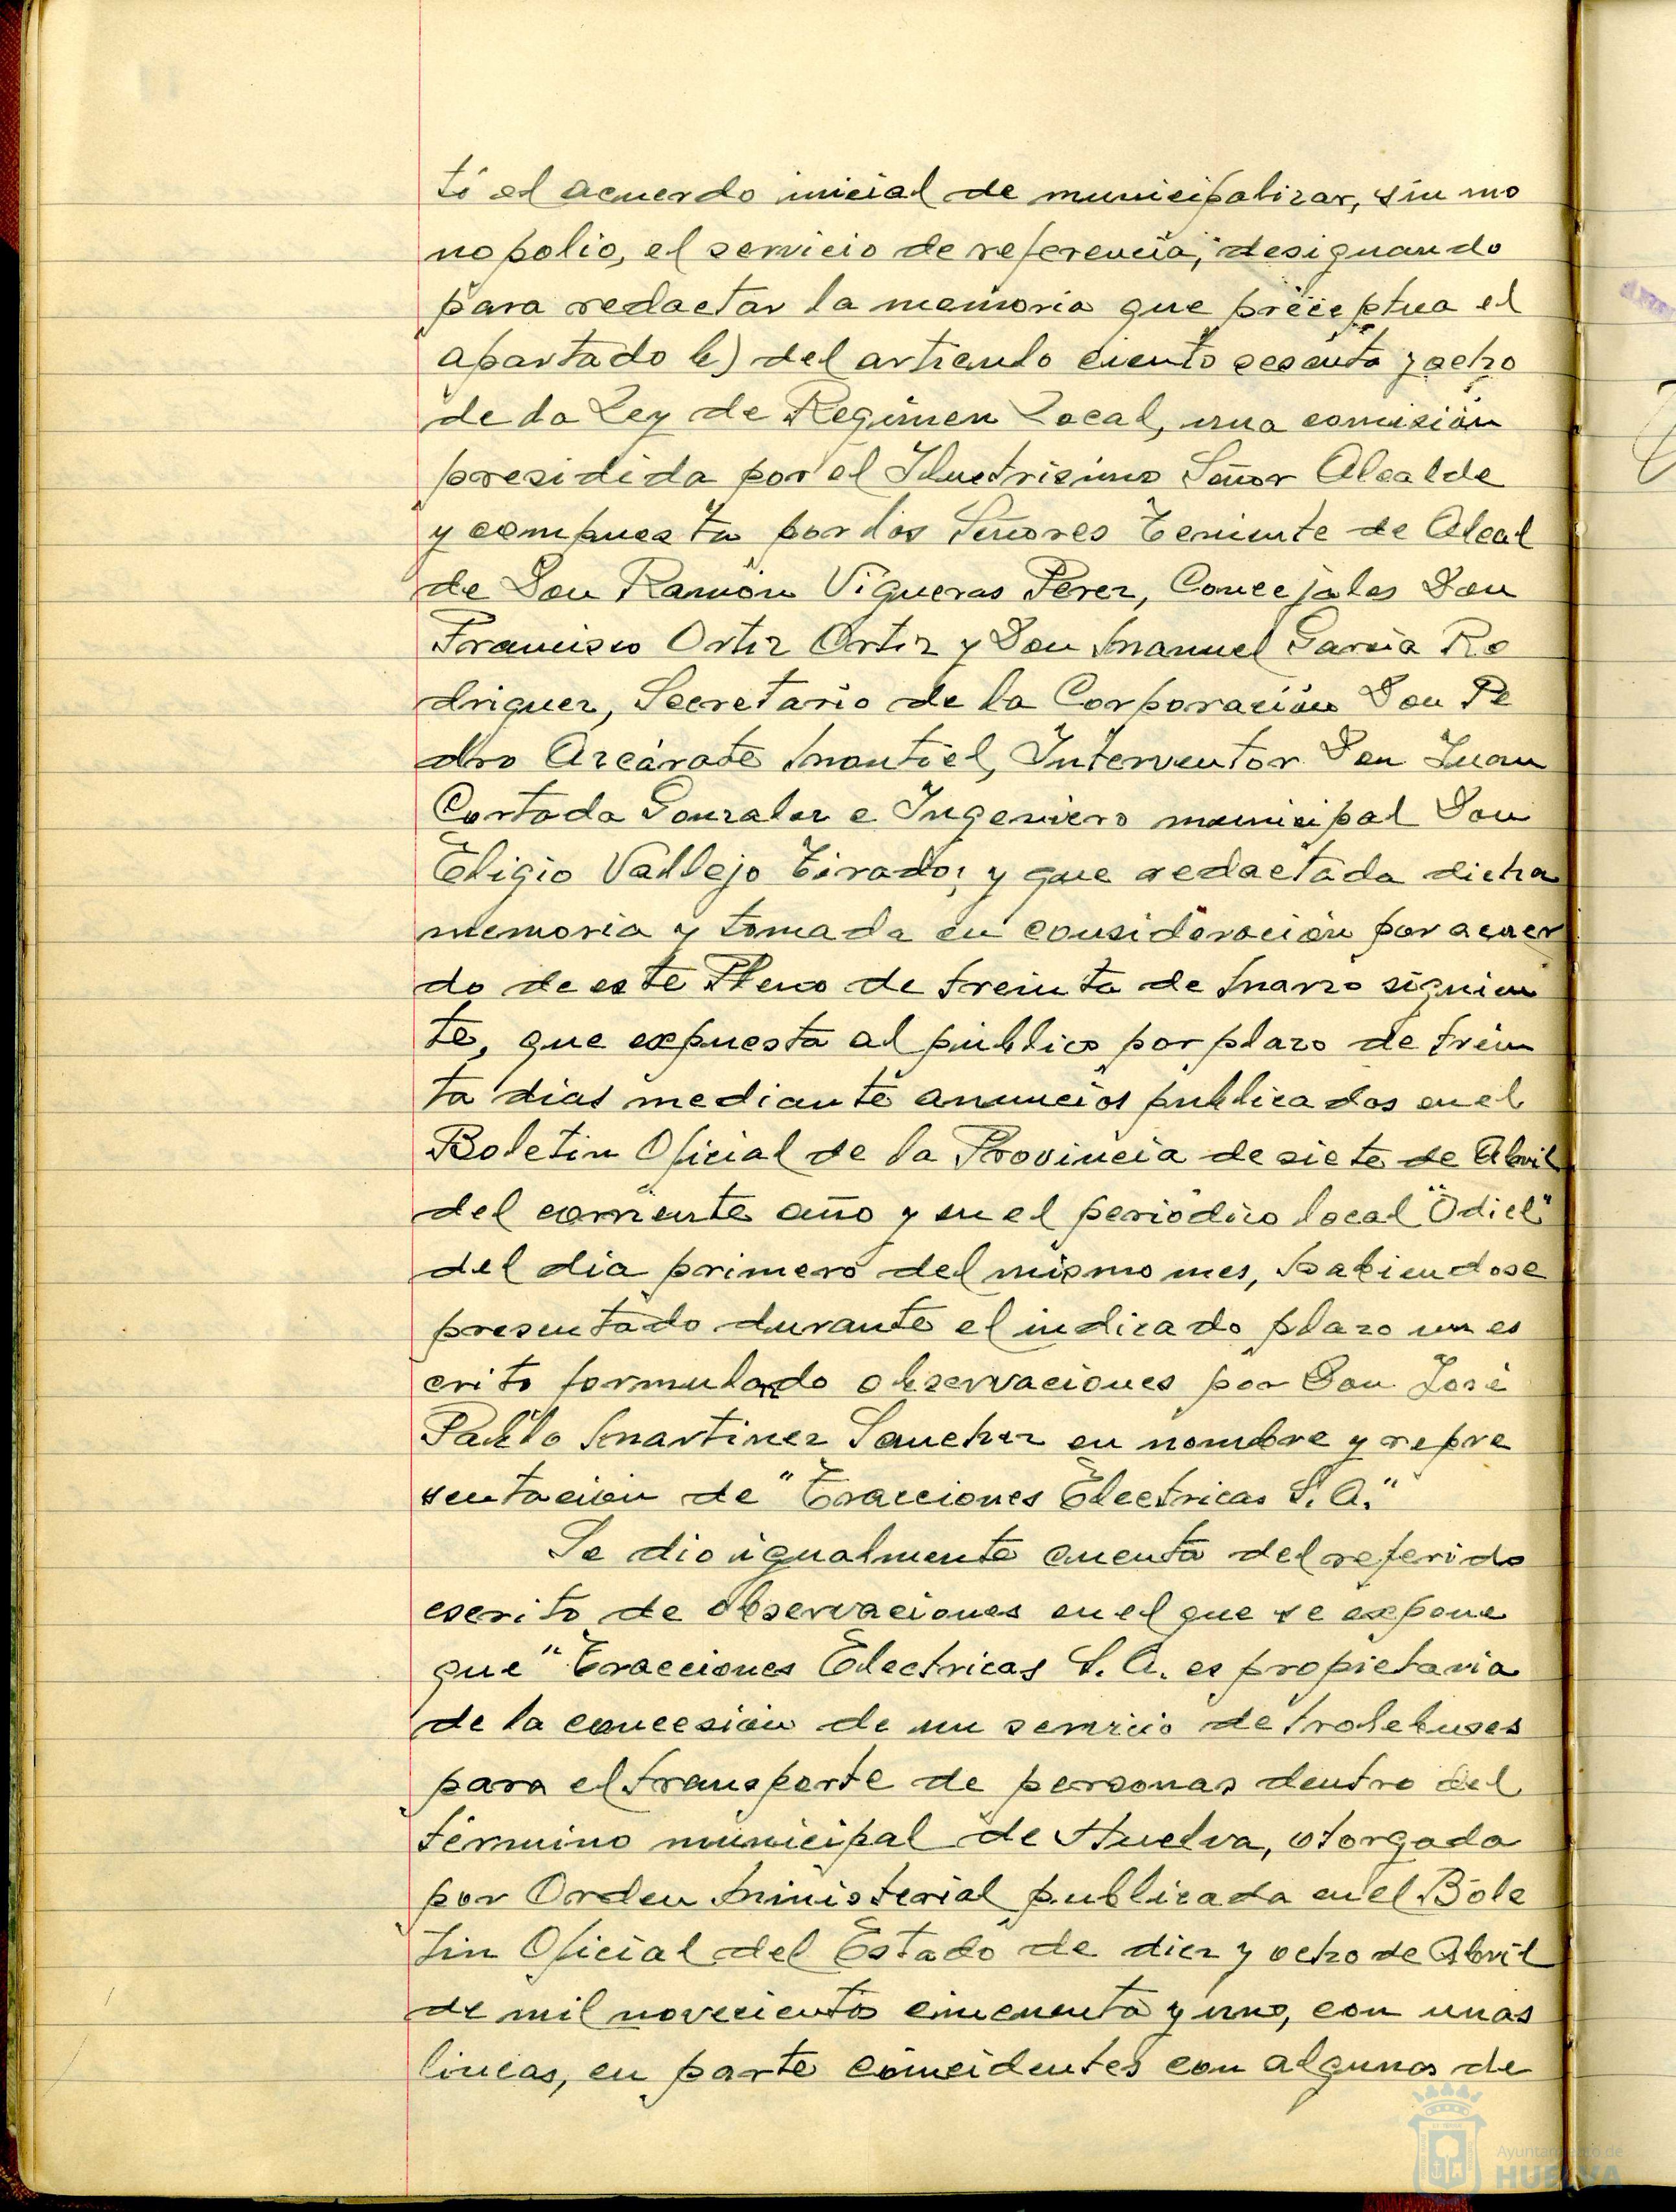 tó el acuerdo inicial de municipalizar, sin mo
nopolio, el servicio de referencia, designando
para redactar la memoria que preceptua el
apartado b) del articulo ciento sesenta y ocho
de la Ley de Regimen Local, una comisión
presidida por el Ilustrisimo Señor Alcalde
y compuesta por los Señores Teniente de Alcal
de Don Ramón Vigueras Perez, Concejales Don
Francisco Ortiz Ortiz y Don Manuel Garcia Ro
driguez, Secretario de la Corporación Don Pe
dro Azcárate Montiel, Interventor Don Juan
Cortada Gonzalez e Ingeniero municipal Don
Eligio Vallejo Tirado; y que redactada dicha
memoria y tomada en consideración por acuer
do de este Pleno de treinta de Marzo siguien
te, que expuesta al público por plazo de trein
ta dias mediante anuncios publicados en el
Boletin Oficial de la Provincia de siete de Abril
del corriente año y en el periódico local "Odiel"
del dia primero del mismo mes, habiendose
presentado durante el indicado plazo un es
crito formulando observaciones por Don José
Pablo Martinez Sanchez en nombre y repre
sentación de "Tracciones Electricas S. A."
Se dio igualmente cuenta del referido
escrito de observaciones en el que se expone
que "Tracciones Electricas S. A. es propietaria
de la concesión de un servicio de trolebuses
para el transporte de personas dentro del
término municipal de Huelva, otorgada
por Orden Ministerial publicada en el Bole
tin Oficial del Estado de diez y ocho de Abril
de mil novecientos cincuenta y uno, con unas
lineas, en parte coincidentes con algunas de
Ayuntamiento de
HUELVA